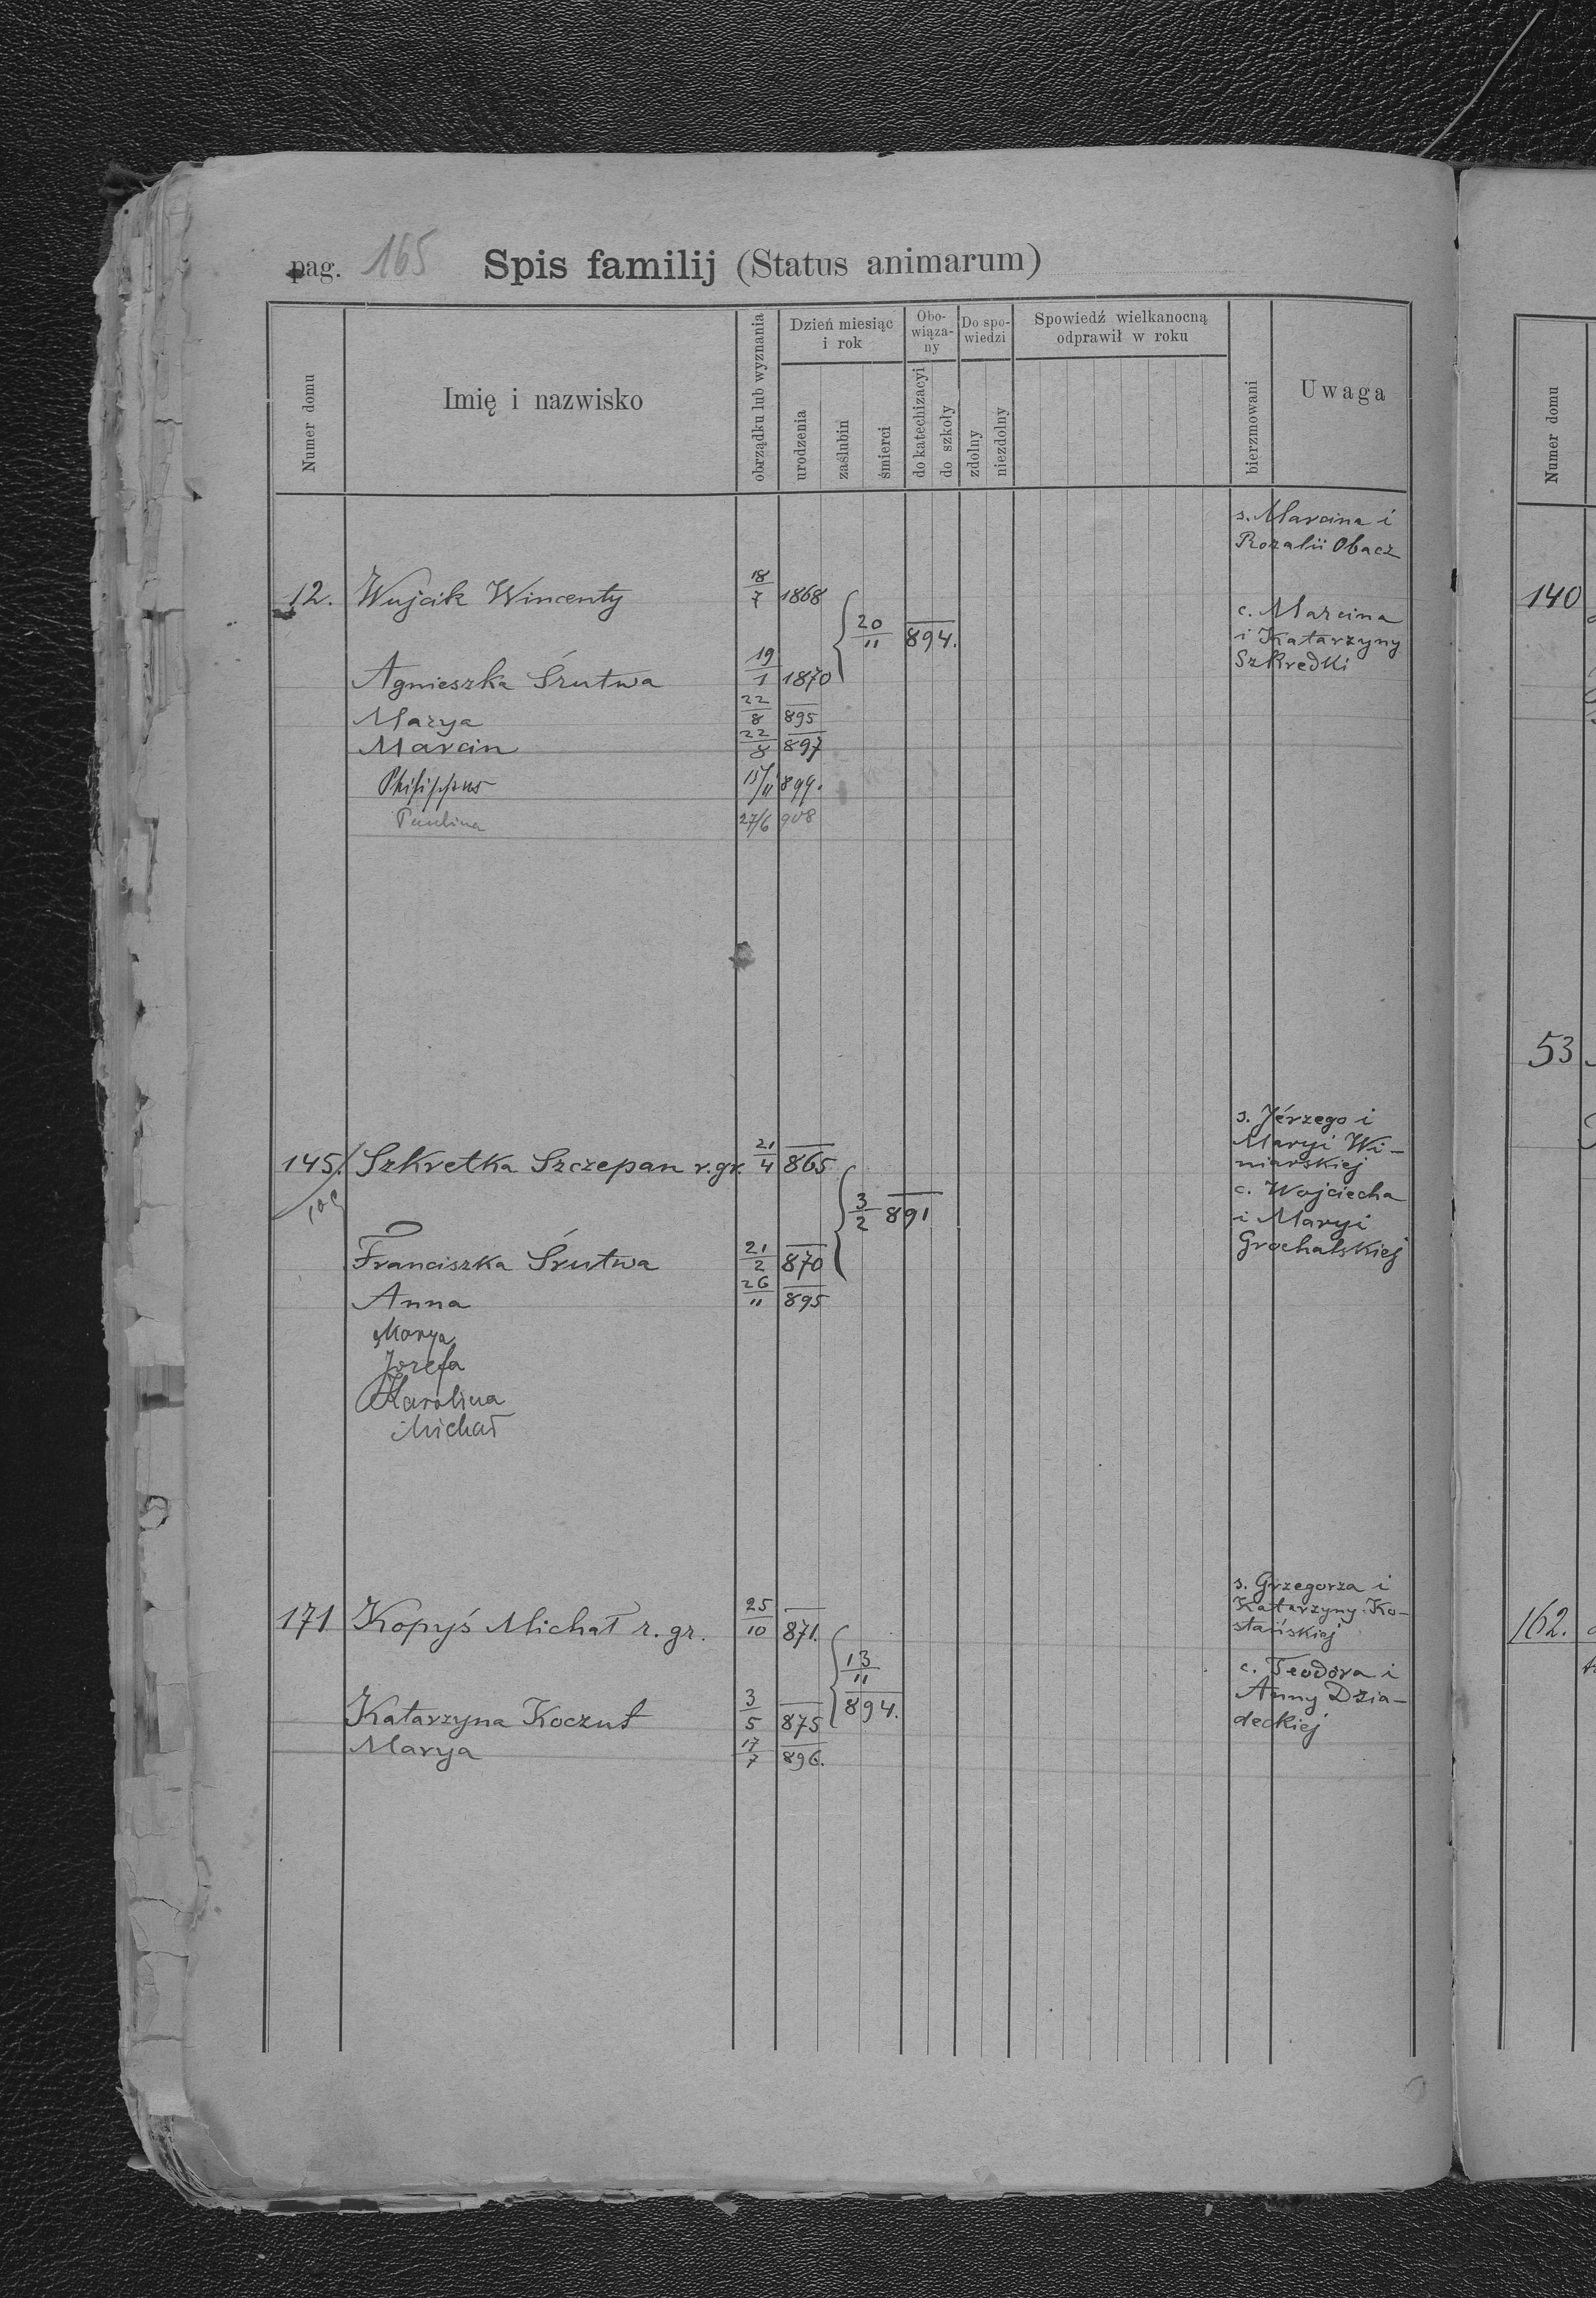 pag. 165 Spis familij (Status animarum)
Numer domu
Imię i nazwisko
obrządku lub wyznania
Dzień miesiąc
i rok
urodzenia
zaślubin
śmierci
Obo-
wiąza-
ny
do katechizacyi
do szkoły
Do spo-
wiedzi
zdolny
niezdolny
Spowiedź wielkanocną
odprawił w roku
bierzmowani
Uwaga
s. Marcina i
Rozalii Obacz
12. Wujcik Wincenty 18/7 1868
20/11 894.
c. Marcina
i Katarzyny
Szkredki
Agnieszka Śrutwa 19/1 1870
Marya 22/8 895
Marcin 22/8 897
Philippus 15/11 899.
Paulina 27/6 908
s. Jérzego i
Maryi Wi-
niarskiej
145. Szkretka Szczepan r. gr. 21/4 865
3/2 891
c. Wojciecha
i Maryi
Grochalskiej
Franciszka Śrutwa 21/2 870
Anna 26/11 895
Marya
Jozefa
Karolina
Michał
s. Grzegorza i
Katarzyny Ko-
stańskiej
171 Kopyś Michał r. gr. 25/10 871.
13/11
894.
c. Teodora i
Anny Dzia-
deckiej
Katarzyna Koczut 3/5 875
Marya 17/7 896.
Numer domu
140
53
162.